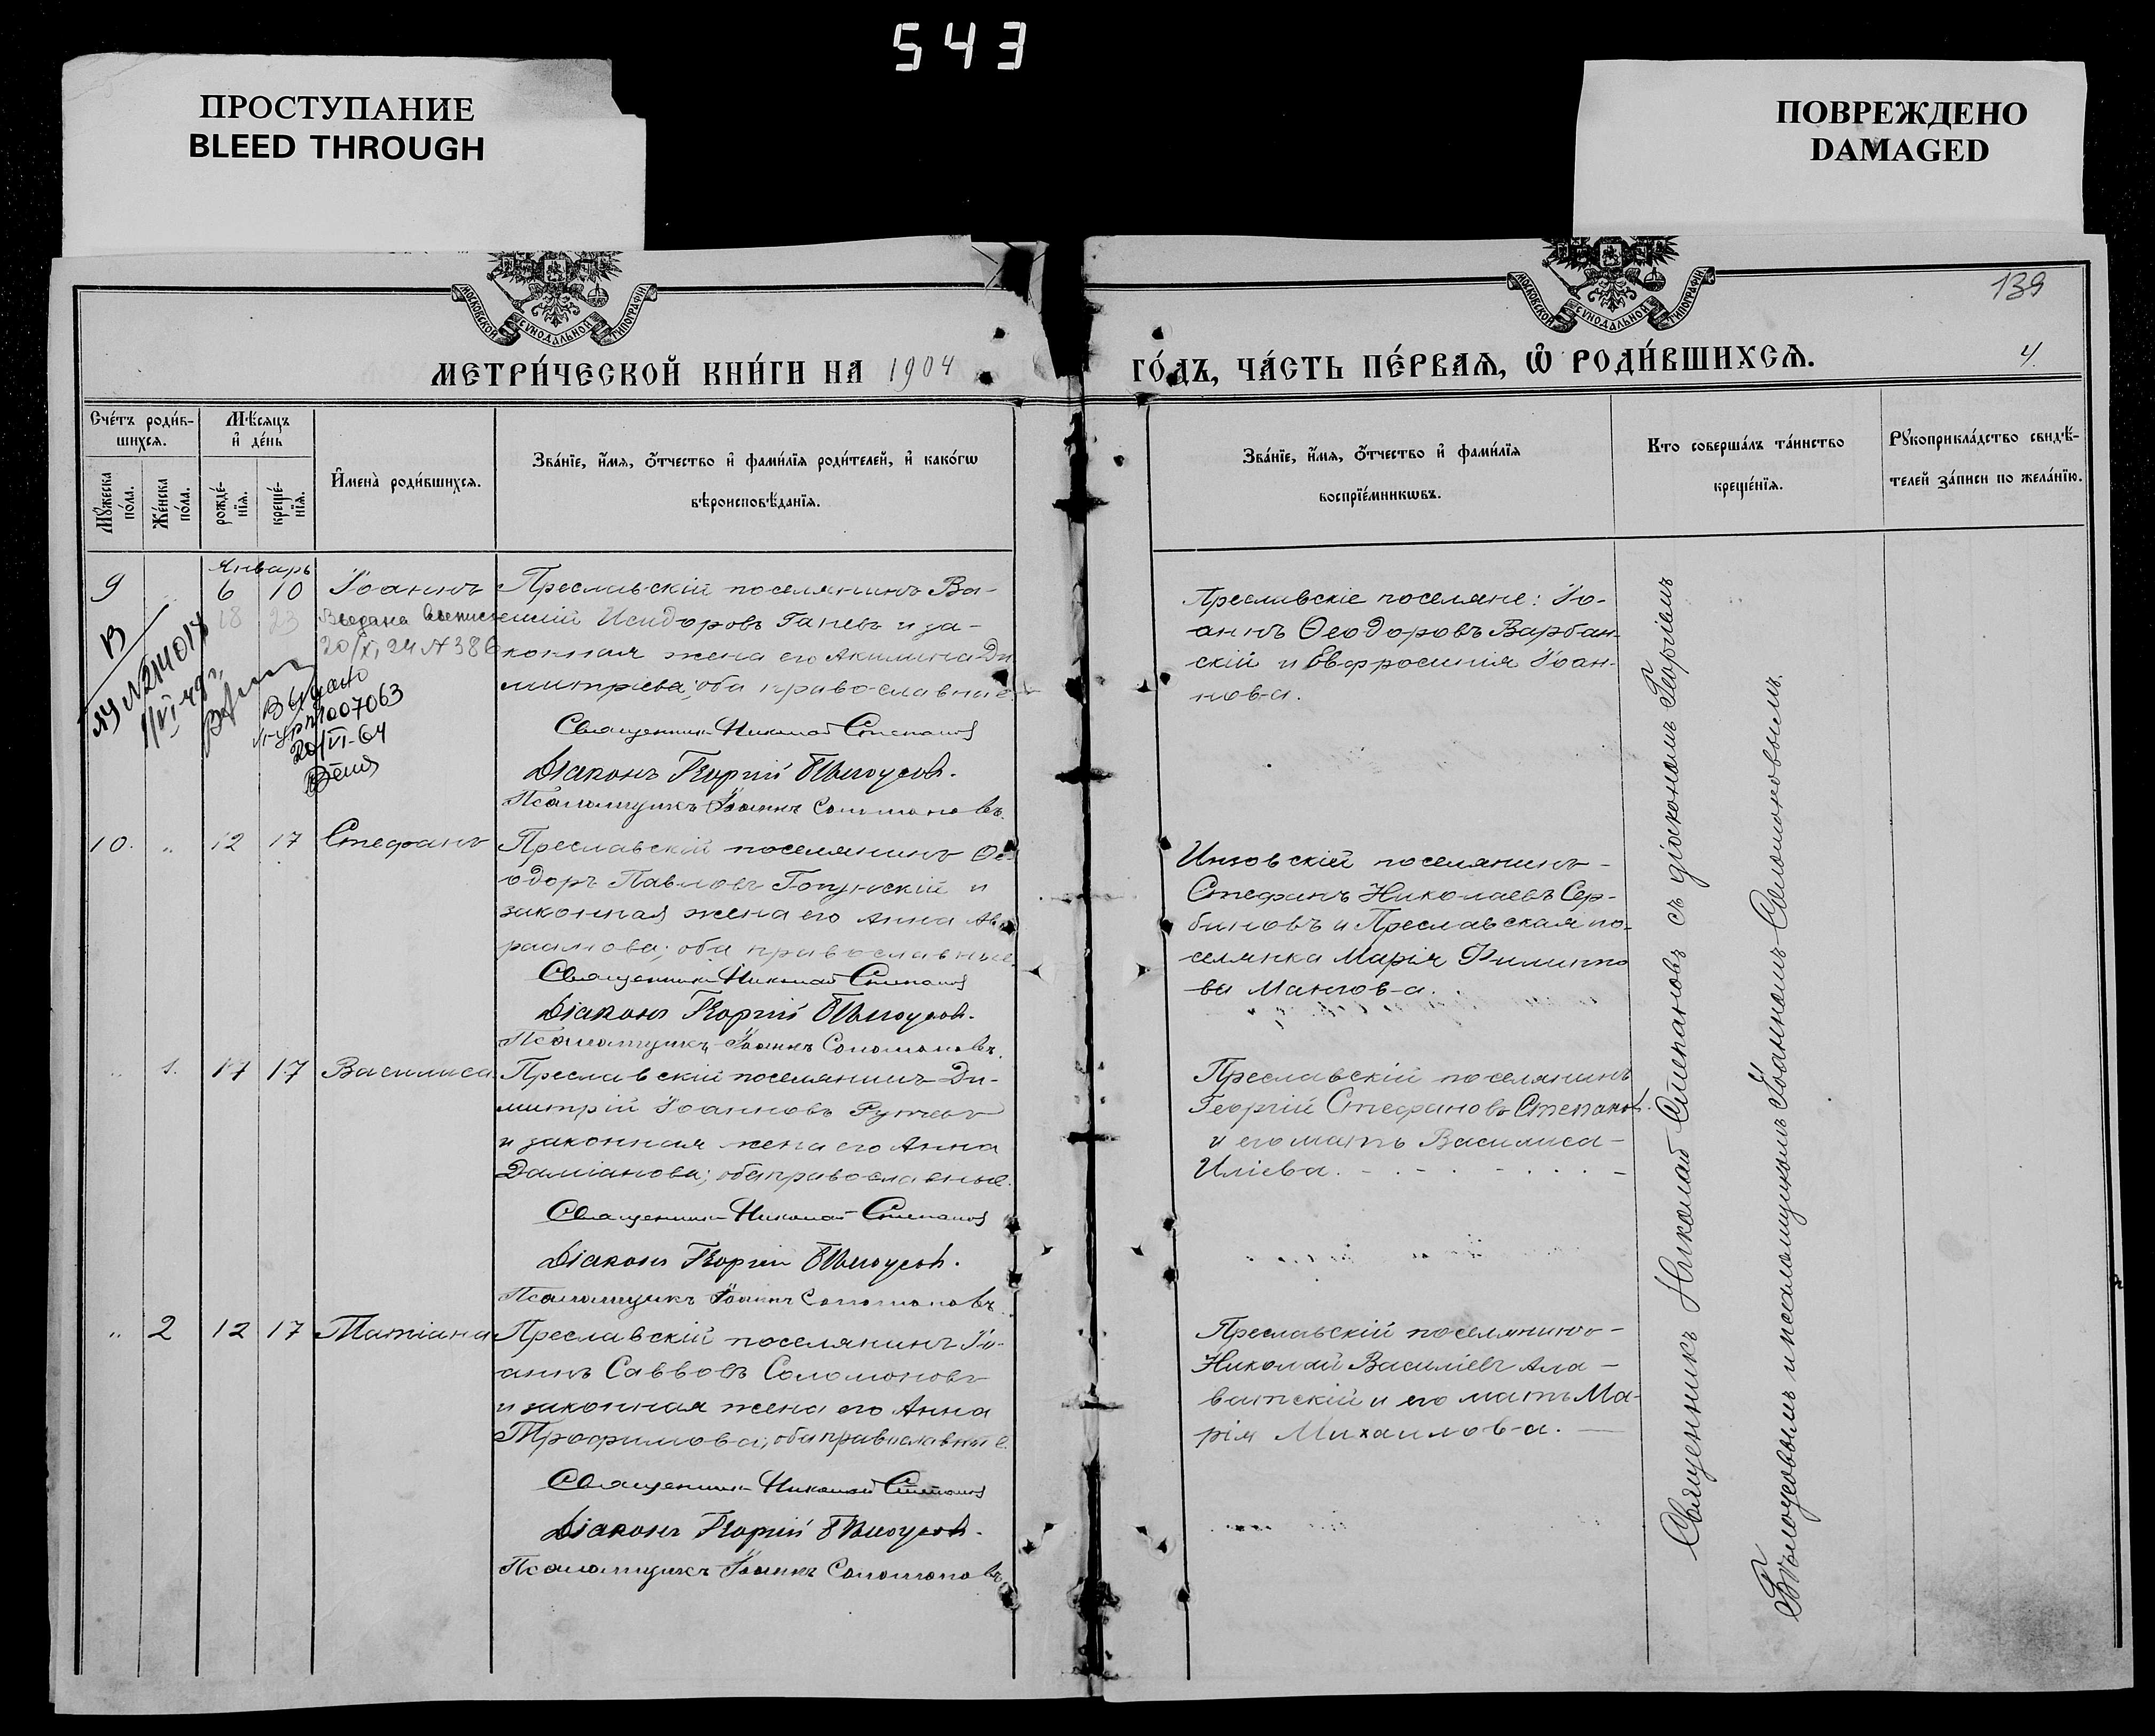 543
ПРОСТУПАНИЕ
BLEED THROUGH
ПОВРЕЖДЕНО
DAMAGED
МОСКОВСКОЙ СУНОДАЛЬНОЙ ТИПОГРАФІИ
МОСКОВСКОЙ СУНОДАЛЬНОЙ ТИПОГРАФІИ
139
МЕТРИ́ЧЕСКОЙ КНИ́ГИ НА 1904
ГО́ДЪ, ЧА́СТЬ ПЕ́РВАЯ, Ѡ҆ РОДИ́ВШИХСЯ.
4.
Сче́тъ роди́в-
шихся.
Мꙋжеска
по́ла.
Же́нска
по́ла.
Мѣ́сяцъ
и҆ де́нь
рожде́-
нїя.
креще́-
нїя.
И҆мена̀ роди́вшихся.
Зва́нїе, и҆́мя, ѻ҆́тчество и҆ фами́лїя роди́телей, и҆ како́гѡ
вѣроисповѣ́данїя.
Зва́нїе, и҆́мя, ѻ҆́тчество и҆ фами́лїя
воспрїе́мникѡвъ.
Кто соверша́лъ та́инство
креще́нїя.
Рꙋкоприкла́дство свидѣ́-
телей за́писи по жела́нїю.
Январь
9 6 10 Іоаннъ
Преславскій поселянинъ Ва-
силій Исидоровъ Ганевъ и за-
конная жена его Акилина Ди
митріева; оба православные
Священникъ Николай Степановъ
Діаконъ Георгій Бѣлоусовъ.
Псаломщикъ Іоаннъ Соломоновъ.
18 23
Выдана выпись
20/XI 24 № 386
В
ЛУ № 214014
1/VI-49 г.
Выдано
1007063
20/VI-64
Преславскіе поселяне: Іо-
аннъ Ѳеодоровъ Варбан-
скій и Евфросинія Іоан-
нова.
10. „ 12 17 Стефанъ
Преславскій поселянинъ Ѳе
одоръ Павловъ Гопунскій и
законная жена его Анна Ав
раамова; оба православные.
Священникъ Николай Степановъ
Діаконъ Георгій Бѣлоусовъ.
Псаломщикъ Іоаннъ Соломоновъ.
Инзовскій поселянинъ -
Стефанъ Николаевъ Сер-
биновъ и Преславская по-
селянка Марія Филиппо
ва Мангова.
„ 1. 17 17 Василиса
Преславскій поселянинъ Ди-
митрій Іоанновъ Рунчевъ
и законная жена его Анна
Даміанова; оба православные.
Священникъ Николай Степановъ
Діаконъ Георгій Бѣлоусовъ.
Псаломщикъ Іоаннъ Соломоновъ.
Преславскій поселянинъ
Георгій Стефановъ Степановъ
и его мать Василиса -
Иліева.
„ 2 12 17 Татіана
Преславскій поселянинъ Іо-
аннъ Саввовъ Соломоновъ
и законная жена его Анна
Трофимова; оба православные.
Священникъ Николай Степановъ
Діаконъ Георгій Бѣлоусовъ.
Псаломщикъ Іоаннъ Соломоновъ
Преславскій поселянинъ -
Николай Василіевъ Ала -
ватскій и его мать Ма-
рія Михаилова. —
Священникъ Николай Степановъ съ діакономъ Георгіемъ
Бѣлоусовымъ и псаломщикомъ Іоанномъ Соломоновымъ.